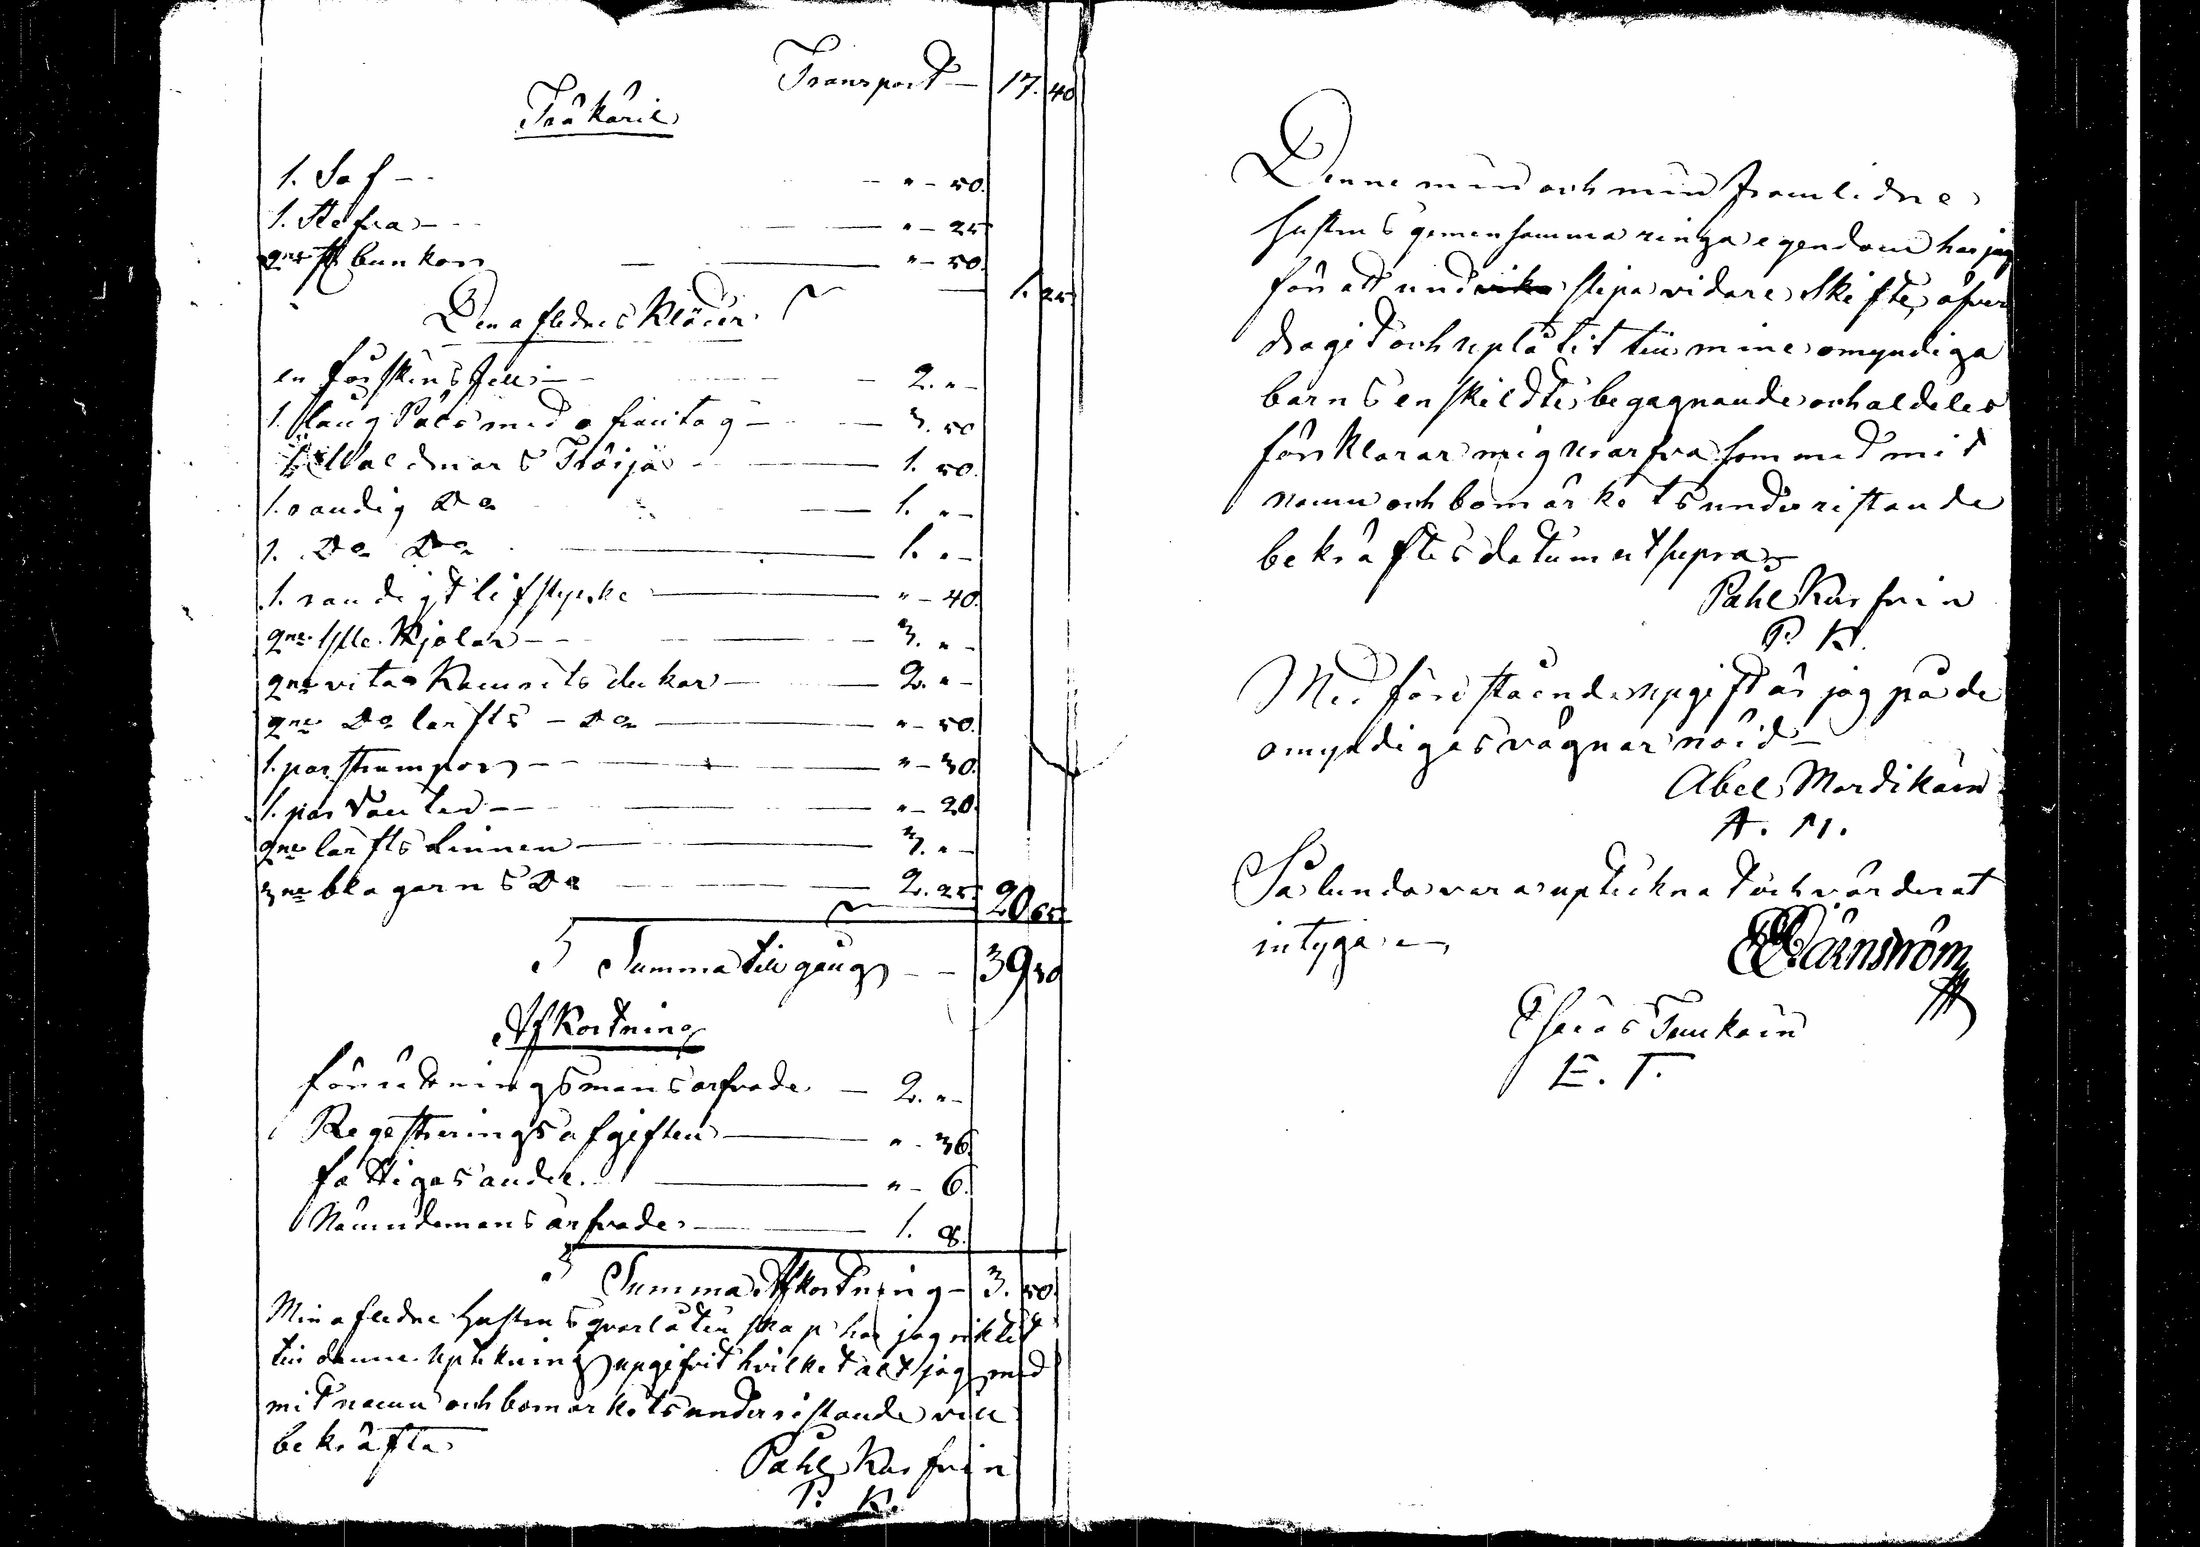 Transport — 17. 40
Träkäril
1. Så — " — 50.
1. Stefva — " — 25
2ne st bunkar — " — 50.
1. 25
Den aflednes Kläder
en fårskins fäll — 2. "
1. lång Päls med — 3. 50
1. Waldmars Tröija — 1. 50.
1. randig Do — 1. "
1. Do Do — 1. "
1. randigt lifstycke — " — 40.
2ne Kjolar — 3. "
2ne vita Kamrits dukar — 2. "
2ne Do lärfts — Do — " — 50.
1. par strumpor — " — 30.
1. par Vantar — " — 20.
2ne lärfts Linnen — 3. "
3ne blagarns Do — 2. 25
20 65
Summa tillgång — 39 30
Afkortning
förrättningsmans arfvode — 2. "
Regestrerings afgiften — " — 36
fattigas andel — " — 6.
Nämndemans arfvode — 1. 8.
Summa Afkortning — 3. 50.
Min afledne hustrus qvarlåtenskap har jag riktit
till denne uptekning upgifvit hvilket alt jag med
mit namn och bomärkets underristande vill
bekräfta
Påhl Kurfvin
P. K.
Denne min och min framlidne
hustrus gemensamma ringa egendom har jag
för att und slipa vidare Skifte, öfver
dragit och uplåtit till mine omyndiga
barns enskildte begagnande och aldeles
förklarar mig urarfva som med mit
namn och bomärkets underristande
bekräftes datum ut supra
Påhl Kurfvin
P. K.
Med förestående upgift är jag på de
omyndigas vägnar nöid —
Abel Mardikain
A. M.
Sålunda vara uptecknat och värderat
intyga —
Wärnström
Eskias Tenkain
E. T.